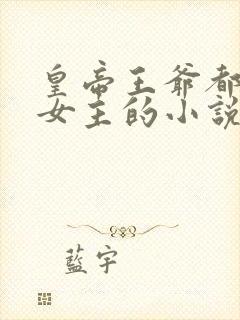 皇帝王爺都
女主的小說
藍宇